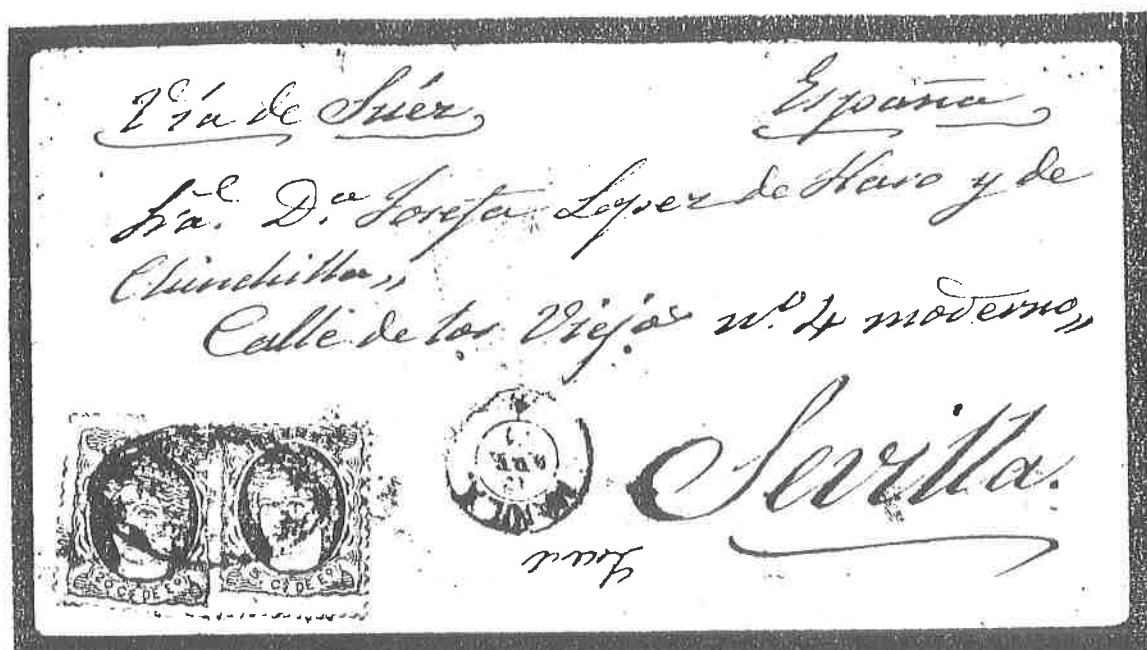 Vía de Suéz, España
Sra. Dª Josefa Lopez de Haro y de
Chinchilla,,
Calle de los Viejos nº 4 moderno,,
Sevilla.
20 Cs DE Eo
Cs DE Eo